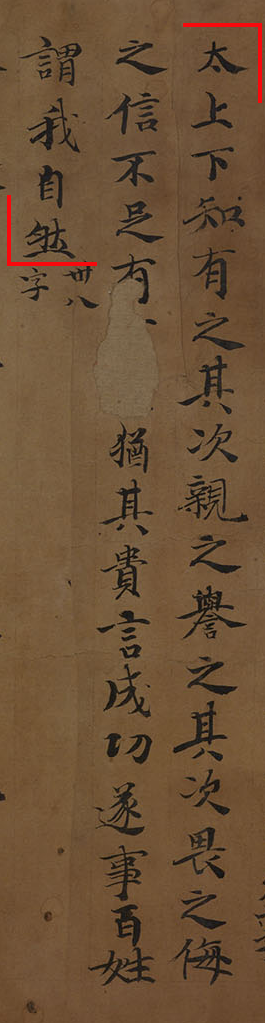 太上下知有之其次親之譽之其次畏之侮
之信不足有猶其貴言成功遂事百姓
謂我自然
卌八字